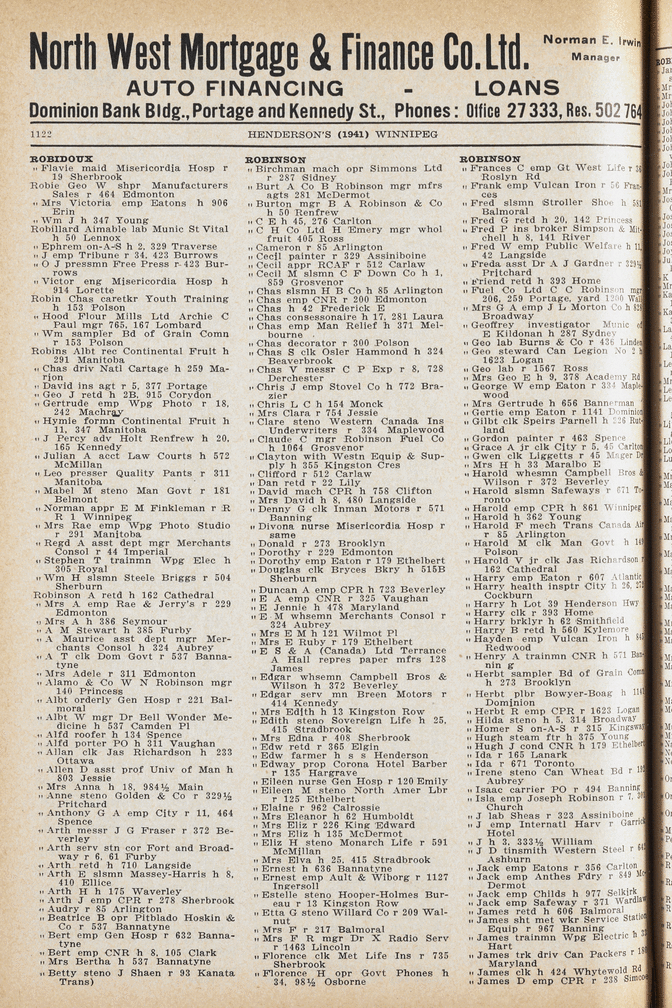 North West Mortgage & Finance Co. Ltd.
Norman E. Irwin
Manager
AUTO FINANCING - LOANS
Dominion Bank Bldg., Portage and Kennedy St., Phones: Office 27 333, Res. 502 764
1122 HENDERSON'S (1941) WINNIPEG
ROBIDOUX
" Flavie maid Misericordja Hosp r
19 Sherbrook
Robie Geo W shpr Manufacturers
Sales r 464 Edmonton
" Mrs Victoria emp Eatons h 906
Erin
" Wm J h 347 Young
Robillard Aimable lab Munic St Vital
h 50 Lennox
" Ephrem on-A-S h 2, 329 Traverse
" J emp Tribune r 34, 423 Burrows
" O J pressmn Free Press r 423 Bur-
rows
" Victor eng Misericordia Hosp h
914 Lorette
Robin Chas caretkr Youth Training
h 153 Polson
" Hood Flour Mills Ltd Archie C
Paul mgr 765, 167 Lombard
" Wm sampler Bd of Grain Comn
r 153 Polson
Robins Albt rec Continental Fruit h
291 Manitoba
" Chas driv Natl Cartage h 259 Ma-
rion
" David ins agt r 5, 377 Portage
" Geo J retd h 2B, 915 Corydon
" Gertrude emp Wpg Photo r 18,
242 Machray
" Hymie formn Continental Fruit h
11, 347 Manitoba
" J Percy adv Holt Renfrew h 20,
165 Kennedy
" Julian A acct Law Courts h 572
McMillan
" Leo presser Quality Pants r 311
Manitoba
" Mabel M steno Man Govt r 181
Belmont
" Norman appr E M Finkleman r R
R 1 Winnipeg
" Mrs Rae emp Wpg Photo Studio
r 291 Manitoba
" Regd A asst dept mgr Merchants
Consol r 44 Imperial
" Stephen T trainmn Wpg Elec h
305 Royal
" Wm H slsmn Steele Briggs r 504
Sherburn
Robinson A retd h 162 Cathedral
" Mrs A emp Rae & Jerry's r 229
Edmonton
" Mrs A h 386 Seymour
" A M Stewart h 385 Furby
" A Maurice asst dept mgr Mer-
chants Consol h 324 Aubrey
" A T clk Dom Govt r 537 Banna-
tyne
" Mrs Adele r 311 Edmonton
" Alamo & Co W N Robinson mgr
140 Princess
" Albt orderly Gen Hosp r 221 Bal-
moral
" Albt W mgr Dr Bell Wonder Me-
dicine h 537 Camden Pl
" Alfd roofer h 134 Spence
" Alfd porter PO h 311 Vaughan
" Allan clk Jas Richardson h 233
Ottawa
" Allen D asst prof Univ of Man h
803 Jessie
" Mrs Anna h 18, 984½ Main
" Anne steno Golden & Co r 329½
Pritchard
" Anthony G A emp City r 11, 464
Spence
" Arth messr J G Fraser r 372 Be-
verley
" Arth serv stn cor Fort and Broad-
way r 6, 61 Furby
" Arth retd h 710 Langside
" Arth E slsmn Massey-Harris h 8,
410 Ellice
" Arth H h 175 Waverley
" Arth J emp CPR r 278 Sherbrook
" Audry r 85 Arlington
" Beatrice B opr Pitblado Hoskin &
Co r 537 Bannatyne
" Bert emp Gen Hosp r 632 Banna-
tyne
" Bert emp CNR h 8, 105 Clark
" Mrs Bertha h 537 Bannatyne
" Betty steno J Shaen r 93 Kanata
Trans)
ROBINSON
" Birchman mach opr Simmons Ltd
r 287 Sidney
" Burt A Co B Robinson mgr mfrs
agts 281 McDermot
" Burton mgr B A Robinson & Co
h 50 Renfrew
" C E h 45, 276 Carlton
" C H Co Ltd H Emery mgr whol
fruit 405 Ross
" Cameron r 85 Arlington
" Cecil painter r 329 Assiniboine
" Cecil appr RCAF r 512 Carlaw
" Cecil M slsmn C F Down Co h 1,
859 Grosvenor
" Chas slsmn H B Co h 85 Arlington
" Chas emp CNR r 200 Edmonton
" Chas h 42 Frederick E
" Chas consessonaire h 17, 281 Laura
" Chas emp Man Relief h 371 Mel-
bourne
" Chas decorator r 300 Polson
" Chas S clk Osler Hammond h 324
Beaverbrook
" Chas V messr C P Exp r 8, 728
Derchester
" Chris J emp Stovel Co h 772 Bra-
zier
" Chris L C h 154 Monck
" Mrs Clara r 754 Jessie
" Clare steno Western Canada Ins
Underwriters r 334 Maplewood
" Claude C mgr Robinson Fuel Co
h 1064 Grosvenor
" Clayton with Westn Equip & Sup-
ply h 355 Kingston Cres
" Clifford r 512 Carlaw
" Dan retd r 22 Lily
" David mach CPR h 758 Clifton
" Mrs David h 8, 480 Langside
" Denny G clk Inman Motors r 571
Banning
" Divona nurse Misericordia Hosp r
same
" Donald r 273 Brooklyn
" Dorothy r 229 Edmonton
" Dorothy emp Eaton r 179 Ethelbert
" Douglas clk Bryces Bkry h 515B
Sherburn
" Duncan A emp CPR h 723 Beverley
" E A emp CNR r 325 Vaughan
" E Jennie h 478 Maryland
" E M whsemn Merchants Consol r
324 Aubrey
" Mrs E M h 121 Wilmot Pl
" Mrs E Ruby r 179 Ethelbert
" E S & A (Canada) Ltd Terrance
A Hall repres paper mfrs 128
James
" Edgar whsemn Campbell Bros &
Wilson h 372 Beverley
" Edgar serv mn Breen Motors r
414 Kennedy
" Mrs Edjth h 13 Kingston Row
" Edith steno Sovereign Life h 25,
415 Stradbrook
" Mrs Edna r 408 Sherbrook
" Edw retd r 365 Elgin
" Edw farmer h s s Henderson
" Edway prop Corona Hotel Barber
r 135 Hargrave
" Eileen nurse Gen Hosp r 120 Emily
" Eileen M steno North Amer Lbr
r 125 Ethelbert
" Elaine r 962 Calrossie
" Mrs Eleanor h 62 Humboldt
" Mrs Eliz r 226 King Edward
" Mrs Eliz h 135 McDermot
" Eliz H steno Monarch Life r 591
McMjllan
" Mrs Elva h 25, 415 Stradbrook
" Ernest h 636 Bannatyne
" Ernest emp Ault & Wiborg r 1127
Ingersoll
" Estelle steno Hooper-Holmes Bur-
eau r 13 Kingston Row
" Etta G steno Willard Co r 209 Wal-
nut
" Mrs F r 217 Balmoral
" Mrs F R mgr Dr X Radio Serv
r 1463 Lincoln
" Florence clk Met Life Ins r 735
Sherbrook
" Florence H opr Govt Phones h
34, 98½ Osborne
ROBINSON
" Frances C emp Gt West Life r
Roslyn Rd
" Frank emp Vulcan Iron r 56 Fran-
ces
" Fred slsmn Stroller Shoe h
Balmoral
" Fred G retd h 20, 142 Princess
" Fred P ins broker Simpson & Mit-
chell h 8, 141 River
" Fred W emp Public Welfare h 11,
42 Langside
" Freda asst Dr A J Gardner r 329½
Pritchard
" Friend retd h 393 Home
" Fuel Co Ltd C C Robinson mgr
206, 259 Portage, yard 1200 Wall
" Mrs G A emp J L Morton Co h
Broadway
" Geoffrey investigator Munic of
E Kildonan h 287 Sydney
" Geo lab Burns & Co r 436 Linden
" Geo steward Can Legion No 2 h
1623 Logan
" Geo lab r 1567 Ross
" Mrs Geo E h 9, 378 Academy Rd
" George W emp Eaton r 334 Maple-
wood
" Mrs Gertrude h 656 Bannerman
" Gertie emp Eaton r 1141 Dominion
" Gilbt clk Speirs Parnell h 226 Rut-
land
" Gordon painter r 463 Spence
" Grace A jr clk City r 5, 45 Carlton
" Gwen clk Liggetts r 45 Mager Dr
" Mrs H h 33 Maralbo E
" Harold whesmn Campbell Bros &
Wilson r 372 Beverley
" Harold slsmn Safeways r 671 To-
ronto
" Harold emp CPR h 861 Winnipeg
" Harold h 362 Young
" Harold F mech Trans Canada Air
r 85 Arlington
" Harold M clk Man Govt h
Polson
" Harold V jr clk Jas Richardson r
162 Cathedral
" Harry emp Eaton r 607 Atlantic
" Harry health insptr City h 26,
Cockburn
" Harry h Lot 39 Henderson Hwy
" Harry clk r 393 Home
" Harry brklyr h 62 Smithfield
" Harry B retd h 560 Kylemore
" Hayden emp Vulcan Iron h
Redwood
" Henry A trainmn CNR h 571 Ban-
nin g
" Herbt sampler Bd of Grain Com
h 273 Brooklyn
" Herbt plbr Bowyer-Boag h
Dominion
" Herbt R emp CPR r 1623 Logan
" Hilda steno h 5, 314 Broadway
" Homer S on-A-S r 315 Kingsway
" Hugh steam ftr h 375 Young
" Hugh J cond CNR h 179 Ethelbert
" Ida r 165 Lanark
" Ida r 671 Toronto
" Irene steno Can Wheat Bd r
Aubrey
" Isaac carrier PO r 494 Banning
" Isla emp Joseph Robinson r 7,
Church
" J lab Sheas r 323 Assiniboine
" J emp Internatl Harv r Garrick
Hotel
" J h 3, 333½ William
" J D tinsmith Western Steel r
Ashburn
" Jack emp Eatons r 356 Carlton
" Jack emp Anthes Fdry r 849 Mc-
Dermot
" Jack emp Childs h 977 Selkjrk
" Jack emp Safeway r 371 Wardlaw
" James retd h 606 Balmoral
" James sht met wkr Service Station
Equip r 967 Banning
" James trainmn Wpg Electric h
Hart
" James trk driv Can Packers r
Maryland
" James clk h 424 Whytewold Rd
" James D emp CPR r 238 Simcoe